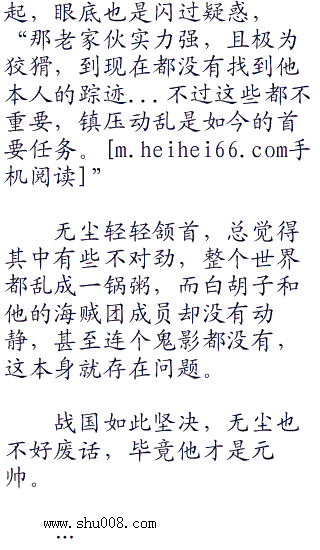 起，眼底也是闪过疑惑，
“那老家伙实力强，且极为
狡猾，到现在都没有找到他
本人的踪迹...不过这些都不
重要，镇压动乱是如今的首
要任务。[m.heihei66.com手
机阅读]”
无尘轻轻颔首，总觉得
其中有些不对劲，整个世界
都乱成一锅粥，而白胡子和
他的海贼团成员却没有动
静，甚至连个鬼影都没有，
这本身就存在问题。
战国如此坚决，无尘也
不好废话，毕竟他才是元
帅。
www.shu008.com
...